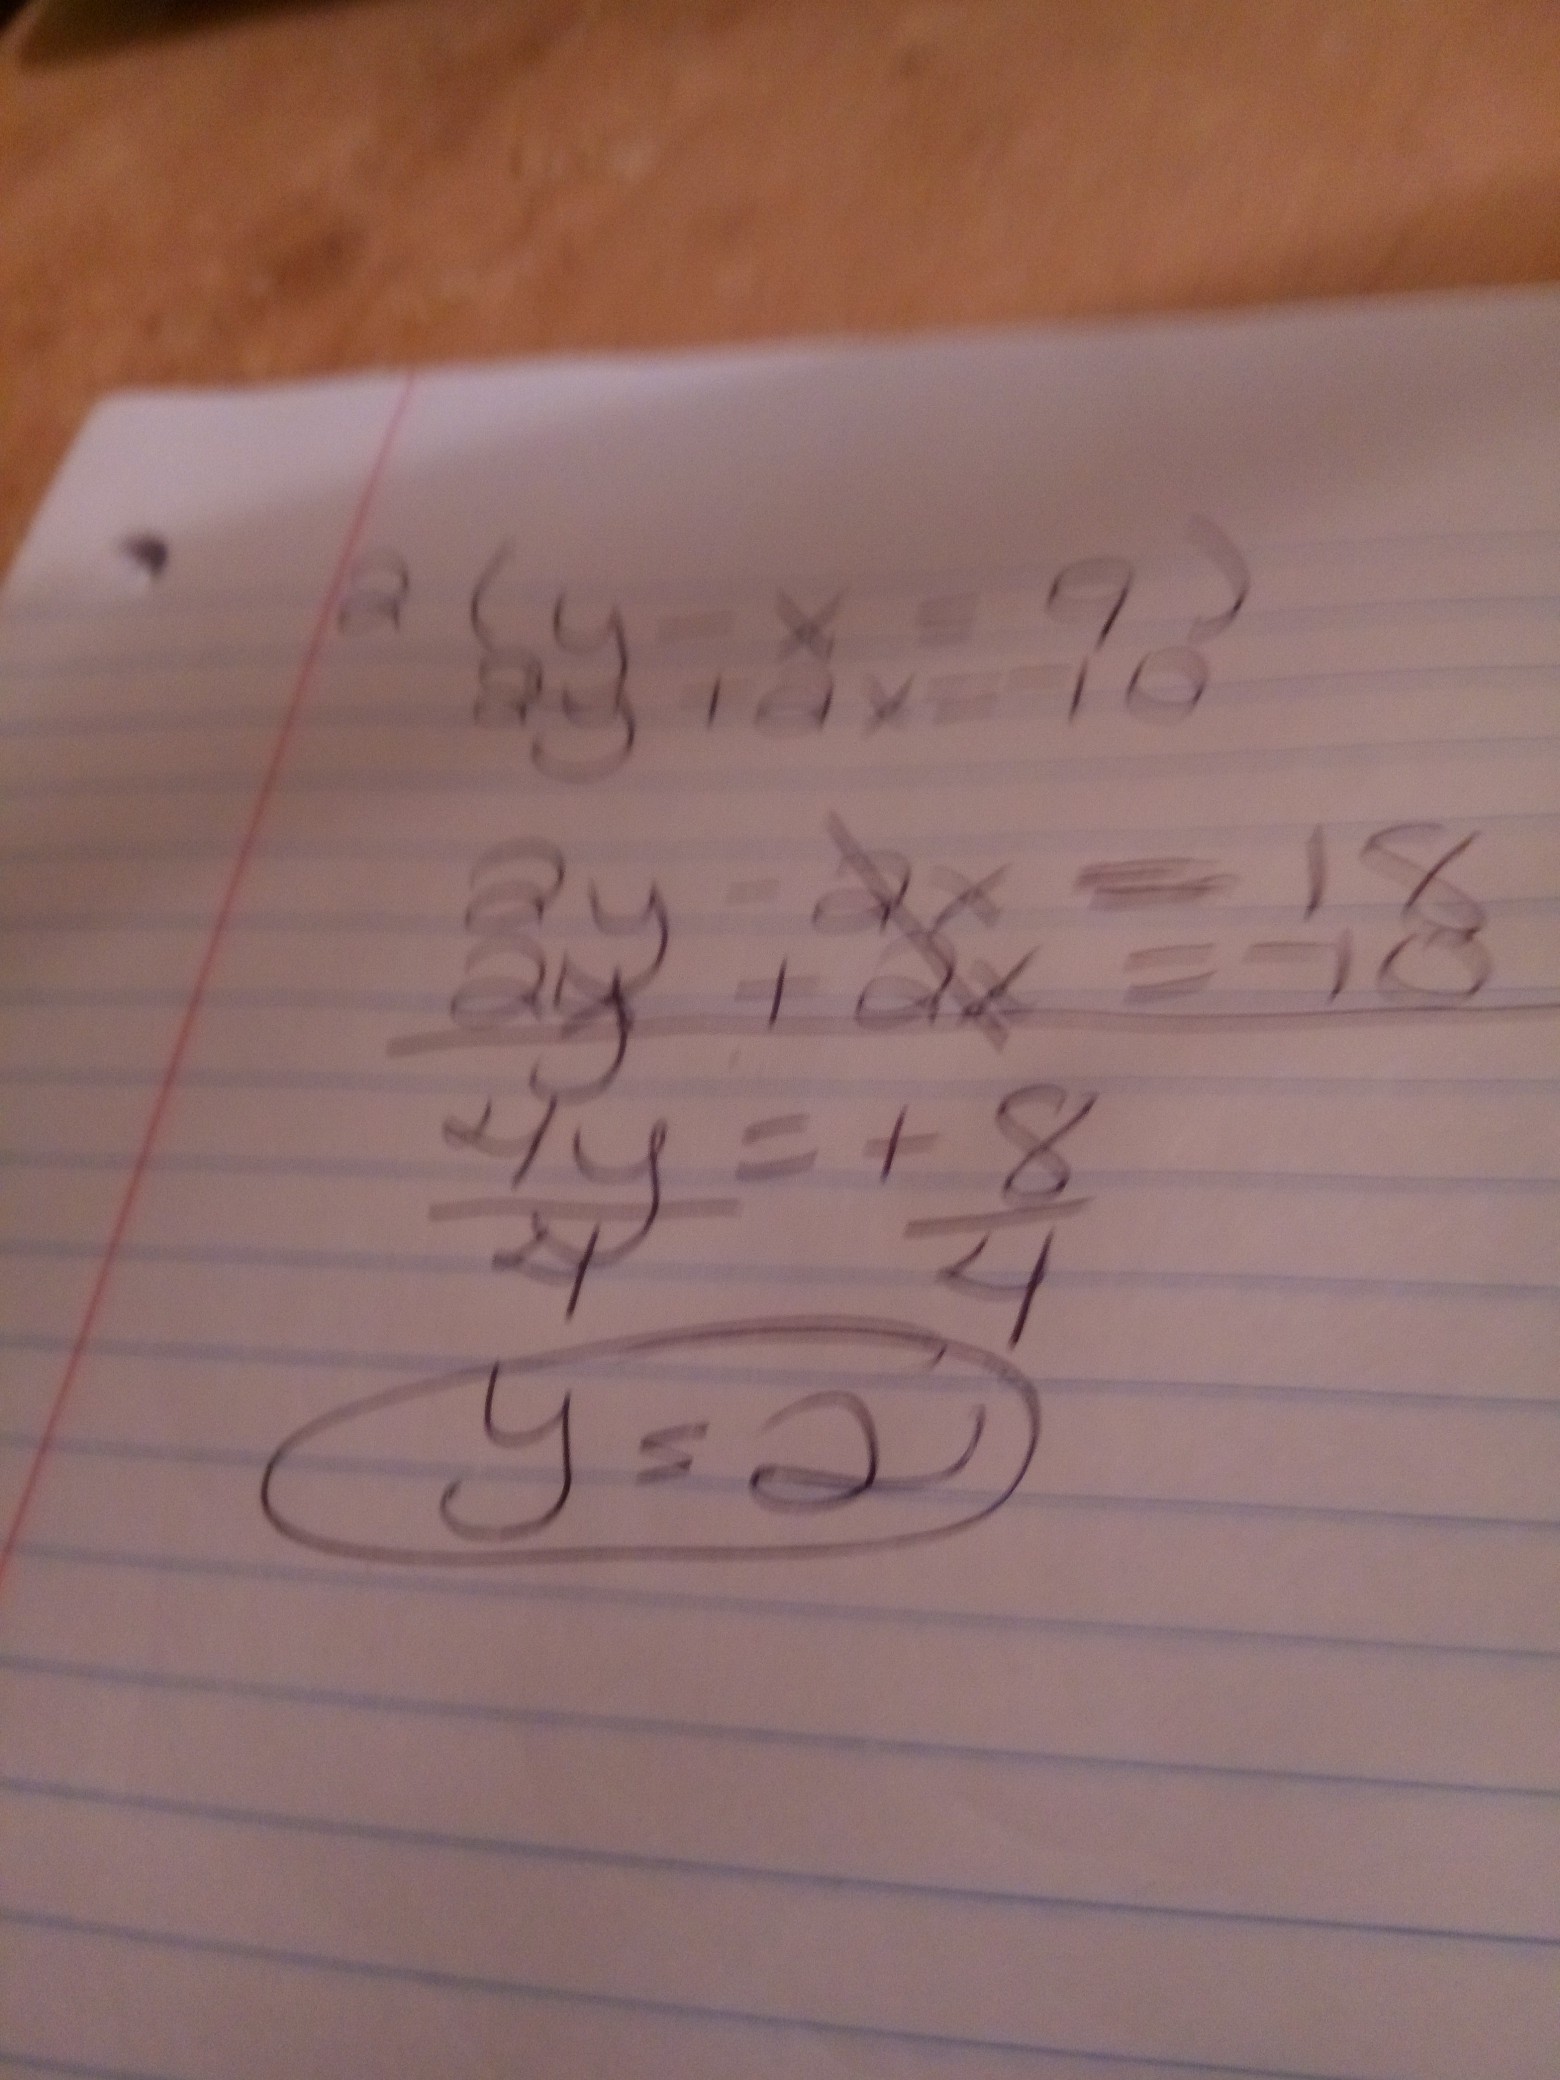 2 (y - x = 9)
2y + 2x = -10
2y - 2x = 18
2y + 2x = -10
4y = + 8
4 4
y = 2